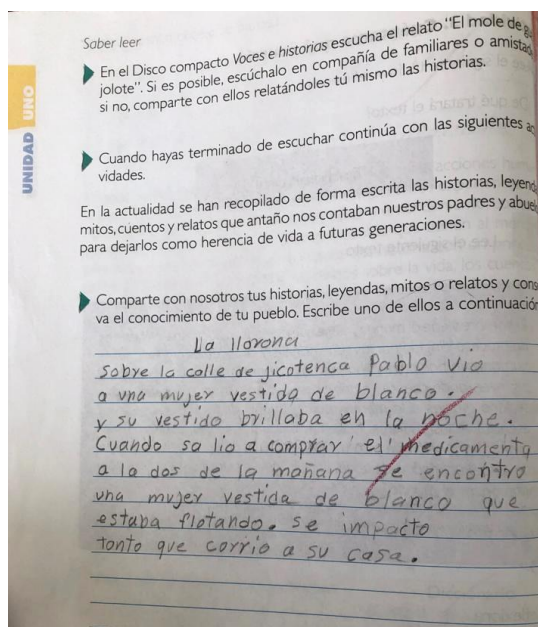 Saber leer
En el Disco compacto Voces e historias escucha el relato "El mole de gua
jolote". Si es posible, escúchalo en compañía de familiares o amistad
si no, comparte con ellos relatándoles tú mismo las historias.
UNIDAD UNO
Cuando hayas terminado de escuchar continúa con las siguientes
vidades.
En la actualidad se han recopilado de forma escrita las historias, leyend
mitos, cuentos y relatos que antaño nos contaban nuestros padres y abue
para dejarlos como herencia de vida a futuras generaciones.
Comparte con nosotros tus historias, leyendas, mitos o relatos y cons
va el conocimiento de tu pueblo. Escribe uno de ellos a continuación
La llorona
Sobre la calle de jicotenca Pablo vio
a una mujer vestida de blanco.
y su vestido brillaba en la noche.
Cuando salio a comprar el medicamenta
a la dos de la mañana se encontro
una mujer vestida de blanco que
estaba flotando. se impacto
tonto que corrio a su casa.